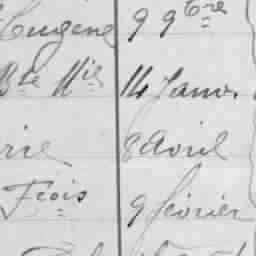 Eugène 9 9bre
Bte Mie 14 Janv.
rie 8 Avril
Fcois 9 février